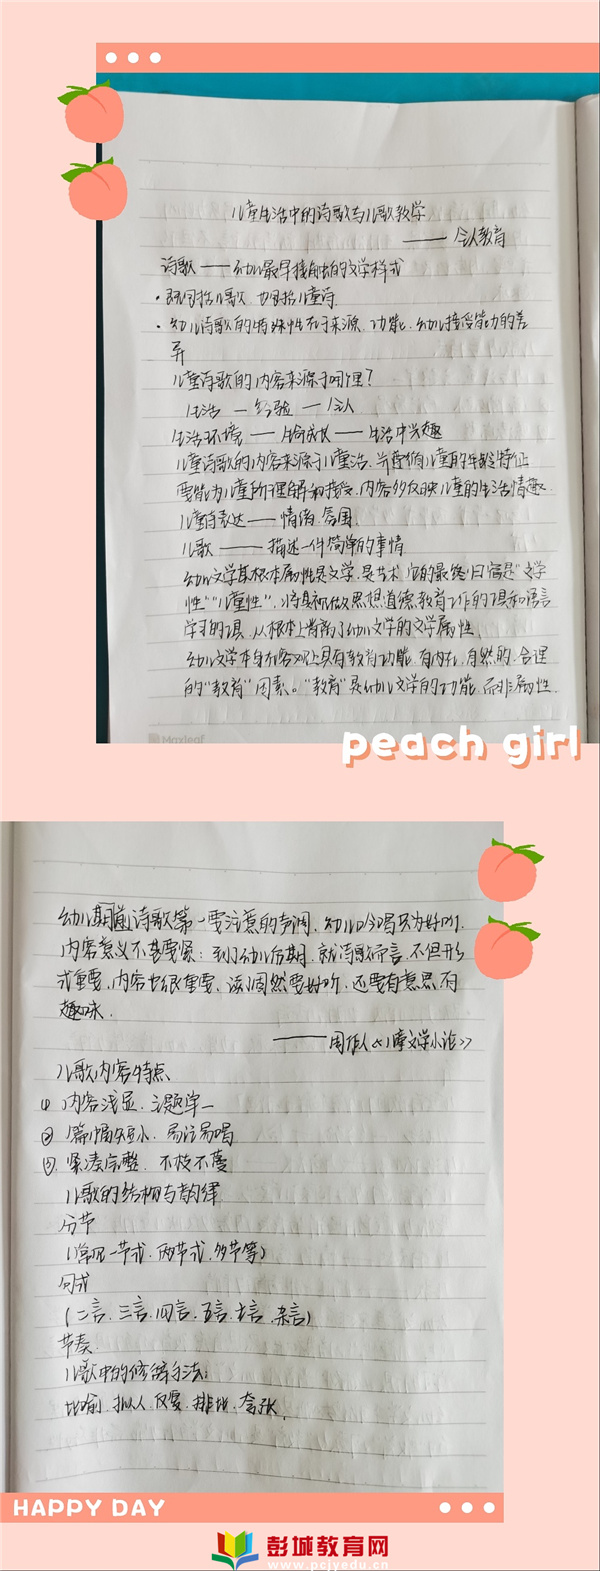 儿童生活中的诗歌与儿歌教学
—— 全人教育
诗歌 —— 幼儿最早接触的文学样式
· 既包括儿歌 也包括儿童诗
· 幼儿诗歌的特殊性在于来源、功能、幼儿接受能力的差
异
儿童诗歌的内容来源于哪里?
生活 — 经验 —
生活环境 —— 生命成长 —— 生活中兴趣
儿童诗歌的内容来源于儿童生活,并遵循儿童的年龄特征
要能为儿童所理解和接受,内容多反映儿童的生活情趣.
儿童诗表达 —— 情绪、氛围
儿歌 —— 描述一件简单的事情
幼儿文学其根本属性是文学,是艺术,它的最终归宿是“文学
性”“儿童性”,将其视做思想道德教育工作的工具和语言
学习的工具,从根本上背离了幼儿文学的文学属性.
幼儿文学本身在客观上具有教育功能,有内在、自然的、合理
的“教育”因素。“教育”是幼儿文学的功能,而非属性.
Maxleaf
peach girl
幼儿期前诗歌第一要注意的声调,幼儿吟唱只为好听,
内容意义不甚要紧;到了幼儿后期,就诗歌而言,不但形
式重要,内容也很重要,读词固然要好听,还要有意思,有
趣味.
—— 周作人《儿童文学小论》
儿歌内容特点
① 内容浅显,主题单一
② 篇幅短小,易记易唱
③ 紧凑完整,不枝不蔓
儿歌的结构与韵律
分节
(常见一节式、两节式、多节等)
句式
(二言、三言、四言、五言、七言、杂言)
节奏.
儿歌中的修辞手法:
比喻、拟人、反复、排比、夸张.
HAPPY DAY
彭城教育网
www.pcjyedu.cn